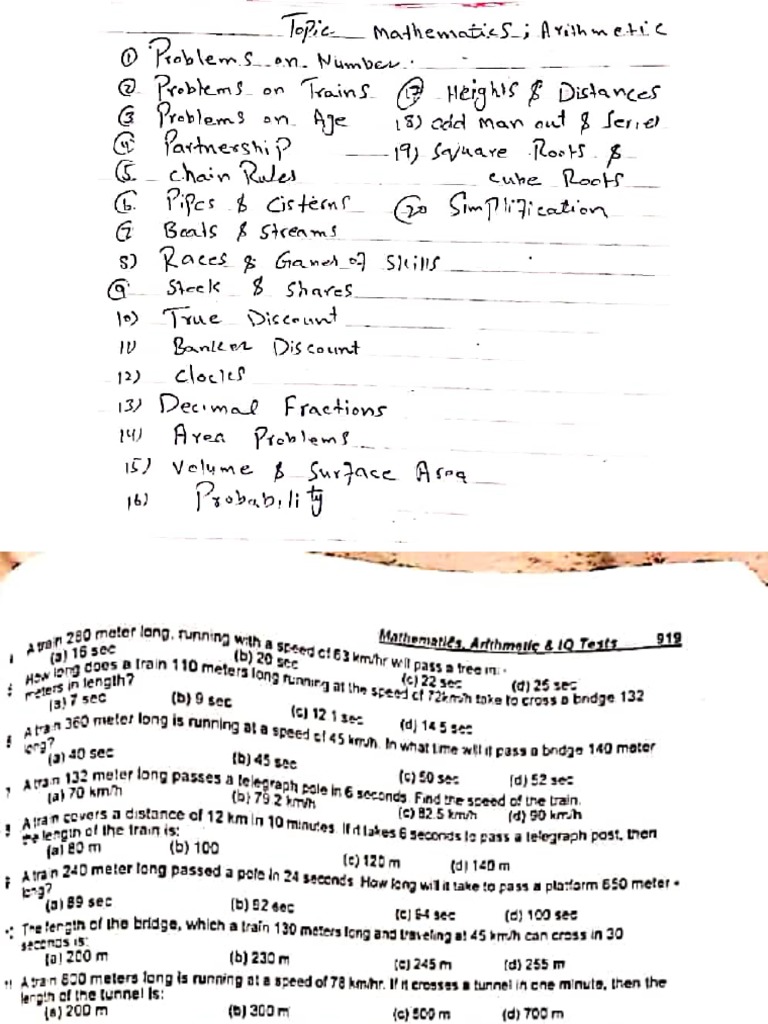 Topic Mathematics ; Arithmetic
① Problems on Number.
② Problems on Trains ⑰ Heights & Distances
③ Problems on Age 18) odd man out & Series
④ Partnership 19) Square Roots &
⑤ Chain Rules cube Roots
⑥ Pipes & Cisterns ⑳ Simplification
⑦ Boats & Streams
8) Races & Games of Skills
⑨ Stock & Shares
10) True Discount
11) Banker Discount
12) Clocks
13) Decimal Fractions
14) Area Problems
15) Volume & Surface Area
16) Probability
Mathematics, Arithmetic & IQ Tests 919
A train 280 meter long, running with a speed of 63 km/hr will pass a tree in: -
(a) 16 sec (b) 20 sec (c) 22 sec (d) 25 sec
How long does a train 110 meters long running at the speed of 72km/h take to cross a bridge 132
meters in length?
(a) 7 sec (b) 9 sec (c) 12 1 sec (d) 14 5 sec
A train 360 meter long is running at a speed of 45 km/h. In what time will it pass a bridge 140 meter
long?
(a) 40 sec (b) 45 sec (c) 50 sec (d) 52 sec
A train 132 meter long passes a telegraph pole in 6 seconds. Find the speed of the train.
(a) 70 km/h (b) 79.2 km/h (c) 82.5 km/h (d) 90 km/h
A train covers a distance of 12 km in 10 minutes. If it takes 6 seconds to pass a telegraph post, then
the length of the train is:
(a) 80 m (b) 100 (c) 120 m (d) 140 m
A train 240 meter long passed a pole in 24 seconds How long will it take to pass a platform 650 meter
long?
(a) 89 sec (b) 92 sec (c) 94 sec (d) 100 sec
The length of the bridge, which a train 130 meters long and traveling at 45 km/h can cross in 30
seconds is:
(a) 200 m (b) 230 m (c) 245 m (d) 255 m
A train 800 meters long is running at a speed of 78 km/hr. If it crosses a tunnel in one minute, then the
length of the tunnel is:
(a) 200 m (b) 300 m (c) 500 m (d) 700 m